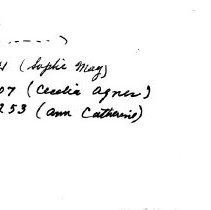 4 (Sophie May)
07 (Cecelia Agnes)
253 (Ann Catherine)